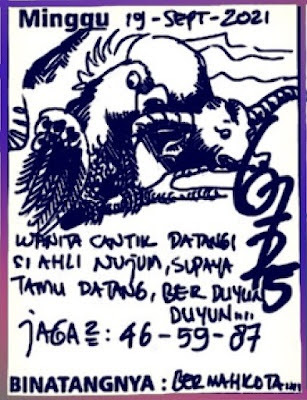 Minggu 19-SEPT-2021
WANITA CANTIK DATANGI
SI AHLI NUJUM, SUPAYA
TAMU DATANG, BERDUYUN
DUYUN....
JAGA2 : 46-59-87
BINATANGNYA : BERMAHKOTA....